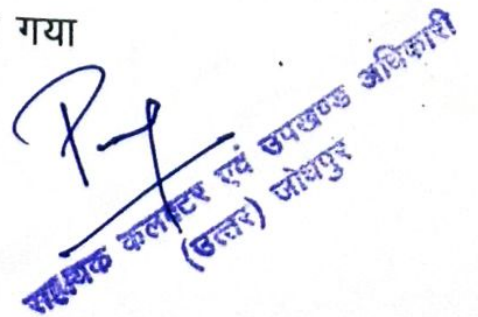 गया
सहायक कलक्टर एवं उपखण्ड अधिकारी
(उत्तर) जोधपुर